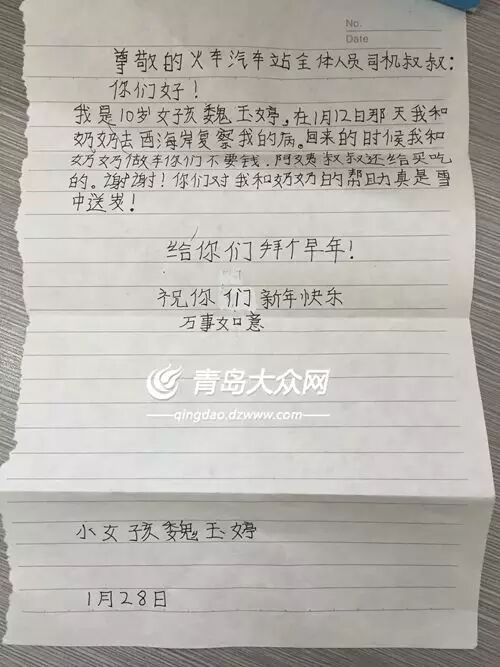 No.
Date
尊敬的火车汽车站全体人员司机叔叔:
你们好!
我是10岁女孩魏玉婷,在1月12日那天我和
奶奶去西海岸复察我的病。回来的时候我和
奶奶做车你们不要钱,阿姨叔叔还给买吃
的。谢谢!你们对我和奶奶的帮助真是雪
中送炭!
给你们拜个早年!
祝你们新年快乐
万事如意
青岛大众网
qingdao.dzwww.com
小女孩魏玉婷
1月28日